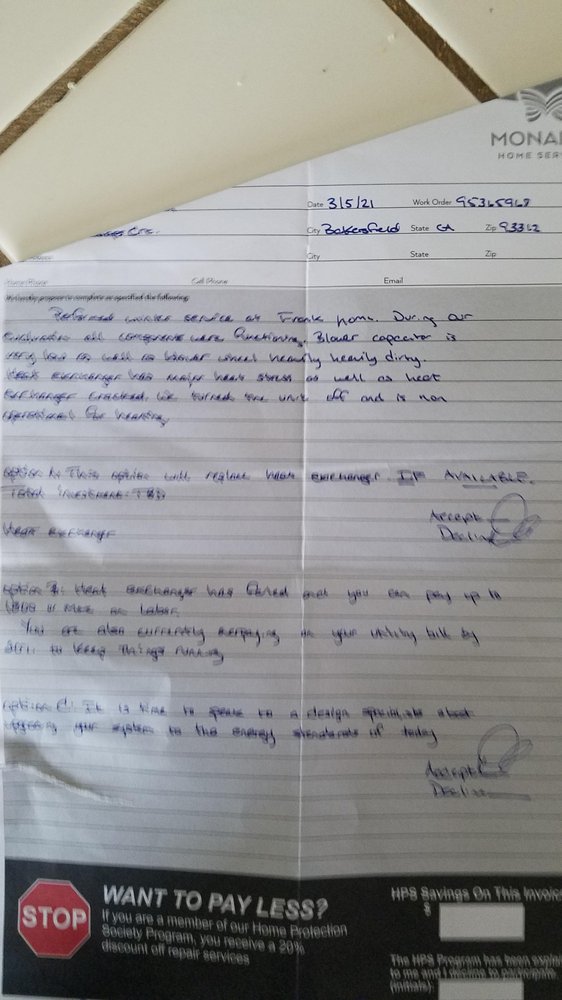 MONA
HOME SER
Date 3/5/21 Work Order 95365968
City Bakersfield State CA Zip 93312
City State Zip
Home Phone Cell Phone Email
Performed winter service at Frank home. During our
evaluation all components were functioning. Blower capacitor is
very low as well as blower wheel heavily heavily dirty.
Heat exchanger has major heat stress as well as heat
exchanger cracked. We turned the unit off and is non
operational for heating.
option A: This option will replace heat exchanger IF AVAILABLE.
Total investment: TBD
Accept
Heat exchanger
Decline
option B: Heat exchanger has failed and you can pay up to
or more on labor.
You are also currently overpaying on your utility bill by
to keep things running
option C: It is time to speak to a design specialist about
your system to the energy standards of today
Accept
Decline
STOP
WANT TO PAY LESS?
If you are a member of our Home Protection
Society Program, you receive a 20%
discount off repair services
HPS Savings On This Invoic
$
The HPS Program has been explai
to me and I decline to participate.
(initials)